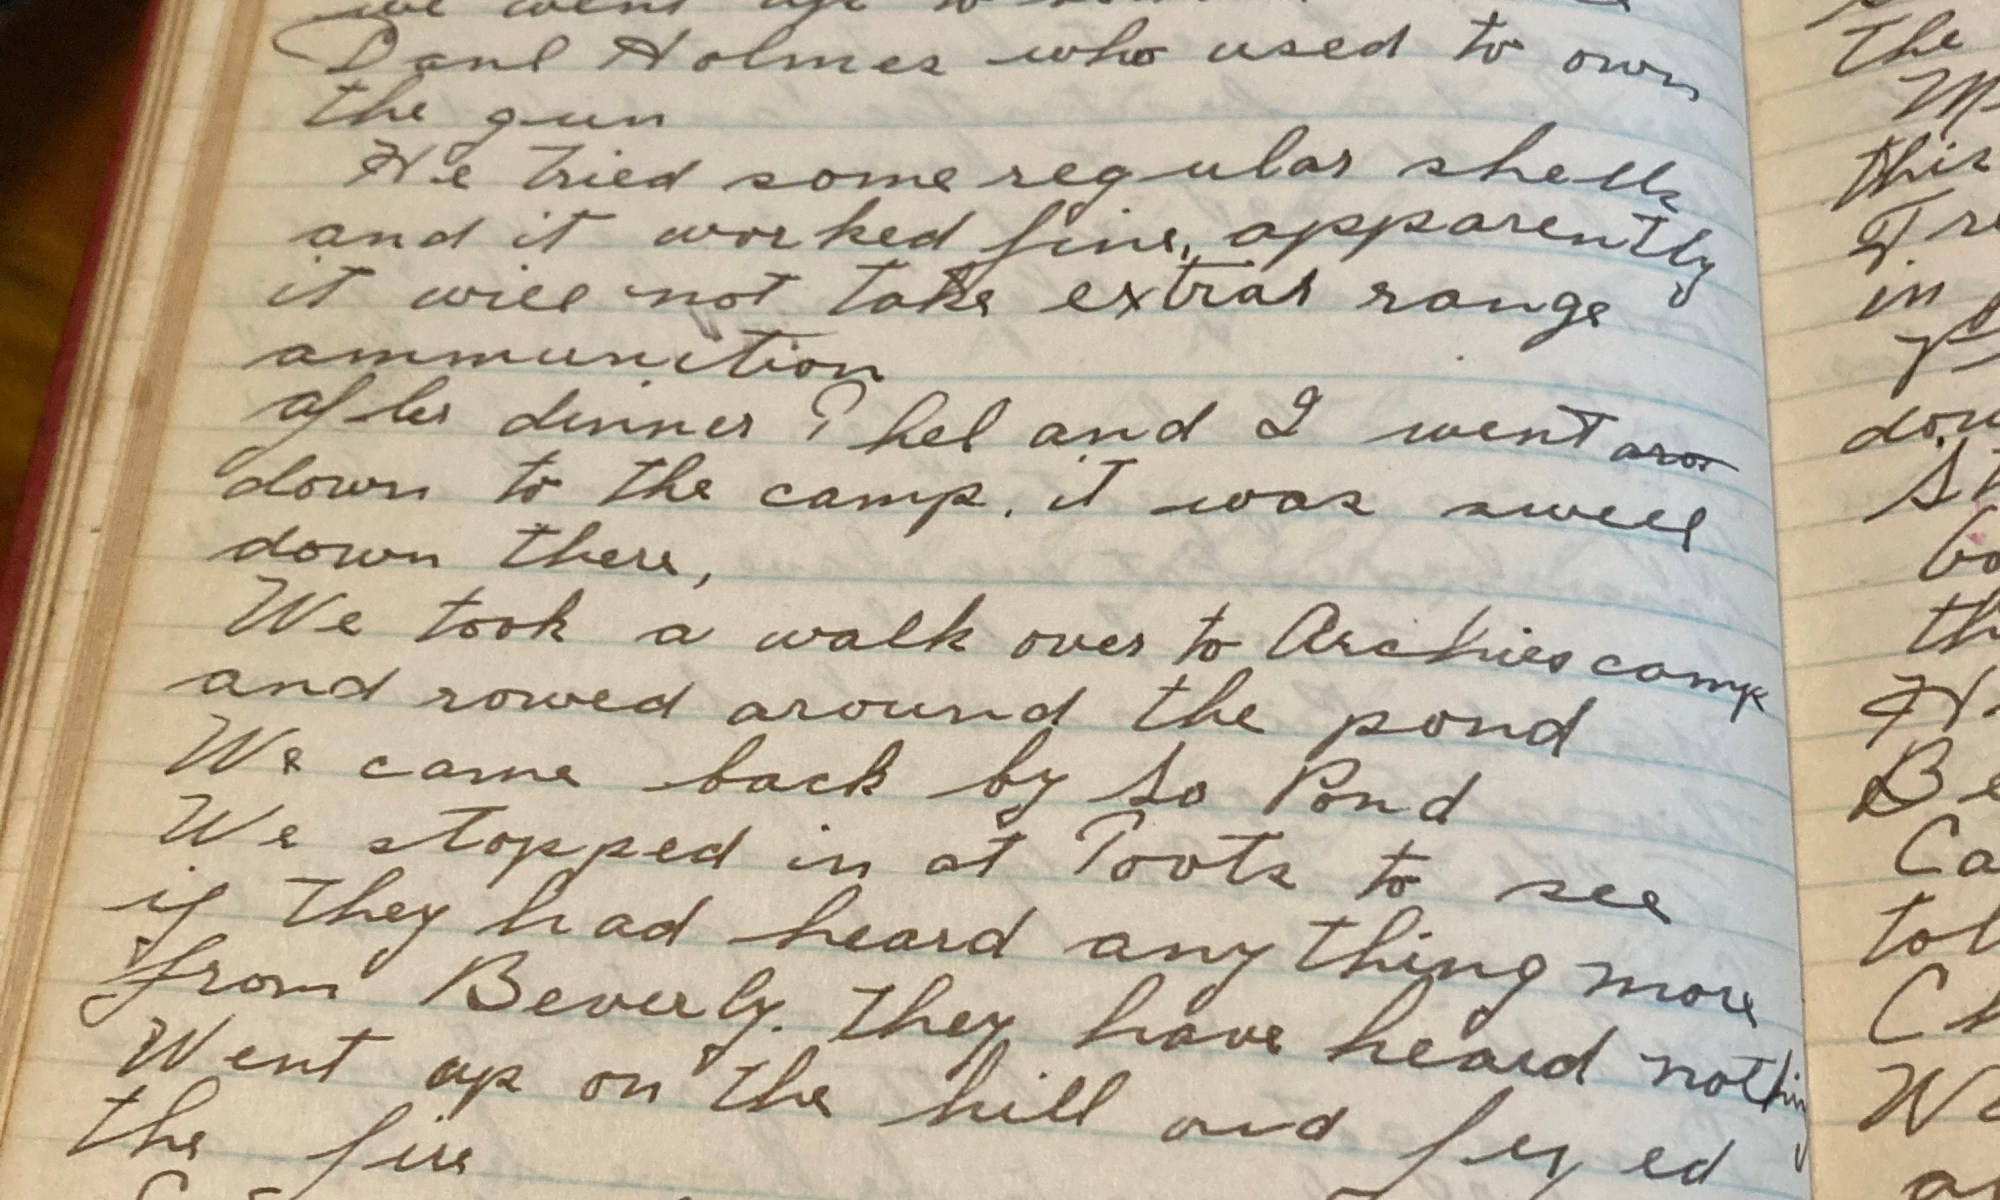 we went up to
Paul Holmes who used to own
the gun
He tried some regular shells
and it worked fine, apparently
it will not take extras range
ammunition
after dinner Phel and I went
down to the camp. it was swell
down there,
We took a walk over to Archies camp
and rowed around the pond
We came back by So Pond
We stopped in at Toots to see
if they had heard any thing more
from Beverly. They have heard nothing
Went up on the hill and
the fire
The
this
in